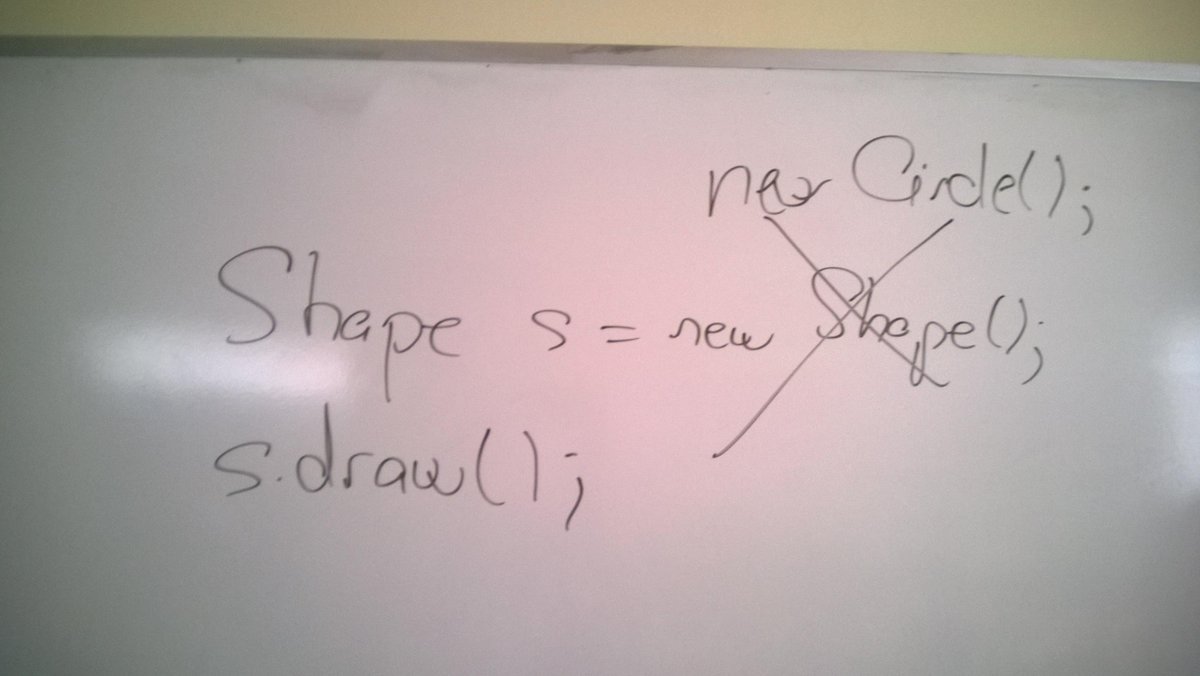 new Circle();
Shape s = new Shape();
s.draw();